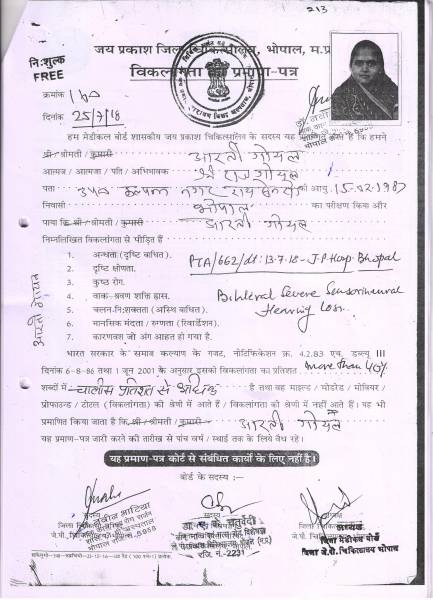 213
जय प्रकाश जिला चिकित्सालय, भोपाल, म.प्र.
नि:शुल्क
FREE
विकलांगता का प्रमाण-पत्र
क्रमांक 160
दिनांक 25/7/18
हम मेडीकल बोर्ड शासकीय जय प्रकाश चिकित्सालय के सदस्य यह प्रमाणित करते है कि हमने
श्री/श्रीमती / कुमारी आरती गोयल
आत्मज / आत्मजा / पति / अभिभावक श्री राज गोयल
पता नगर रायसेन रोड की आयु 15-02-1987
निवासी भोपाल का परीक्षण किया और
पाया कि श्री / श्रीमती / कुमारी आरती गोयल
निम्नलिखित विकलांगता से पीड़ित हैं
1. अन्धता (दृष्टि बाधित).
2. दृष्टि क्षीणता.
PTA/662/dt: 13.7.18 - J.P Hosp. Bhopal
3. कुष्ठ रोग.
4. वाक-श्रवण शक्ति ह्रास.
Bilateral Severe Sensorineural
5. चलन-नि:शक्तता (अस्थि बाधित).
Hearing Loss.
6. मानसिक मंदता / रुग्णता (रिटार्डेशन).
7. कारणवश जो अंग आहत हो गया है.
आरती गोयल
भारत सरकार के समाज कल्याण के गजट, नोटिफिकेशन क्र. 4.2.83 एच. डब्ल्यू III
दिनांक 6-8-86 तथा 1 जून 2001 के अनुसार इसकी विकलांगता का प्रतिशत more than 40%
शब्दों में चालीस प्रतिशत से अधिक है तथा वह माइल्ड / मोडरेड / मोबियर /
प्रोफाउन्ड / टोटल (विकलांगता) की श्रेणी में आते हैं / विकलांगता की श्रेणी में नहीं आते हैं। यह भी
प्रमाणित किया जाता है कि श्री / श्रीमती / कुमारी आरती गोयल
यह प्रमाण-पत्र जारी करने की तारीख से पांच वर्ष / स्थाई तक के लिये वैध रहे।
यह प्रमाण-पत्र कोर्ट से संबंधित कार्यों के लिए नहीं है।
बोर्ड के सदस्य :-
सदस्य
जिला चिकित्सा बोर्ड
जे.पी. चिकित्सालय भोपाल
रजि. नं.-2231
अध्यक्ष
जिला मेडीकल बोर्ड
जिला जे.पी. चिकित्सालय भोपाल